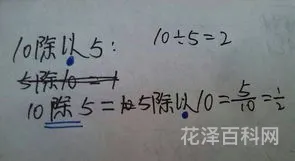 10除以5: 10÷5=2
5除10=1
10除5=5除以10=5/10=1/2
花泽百科网